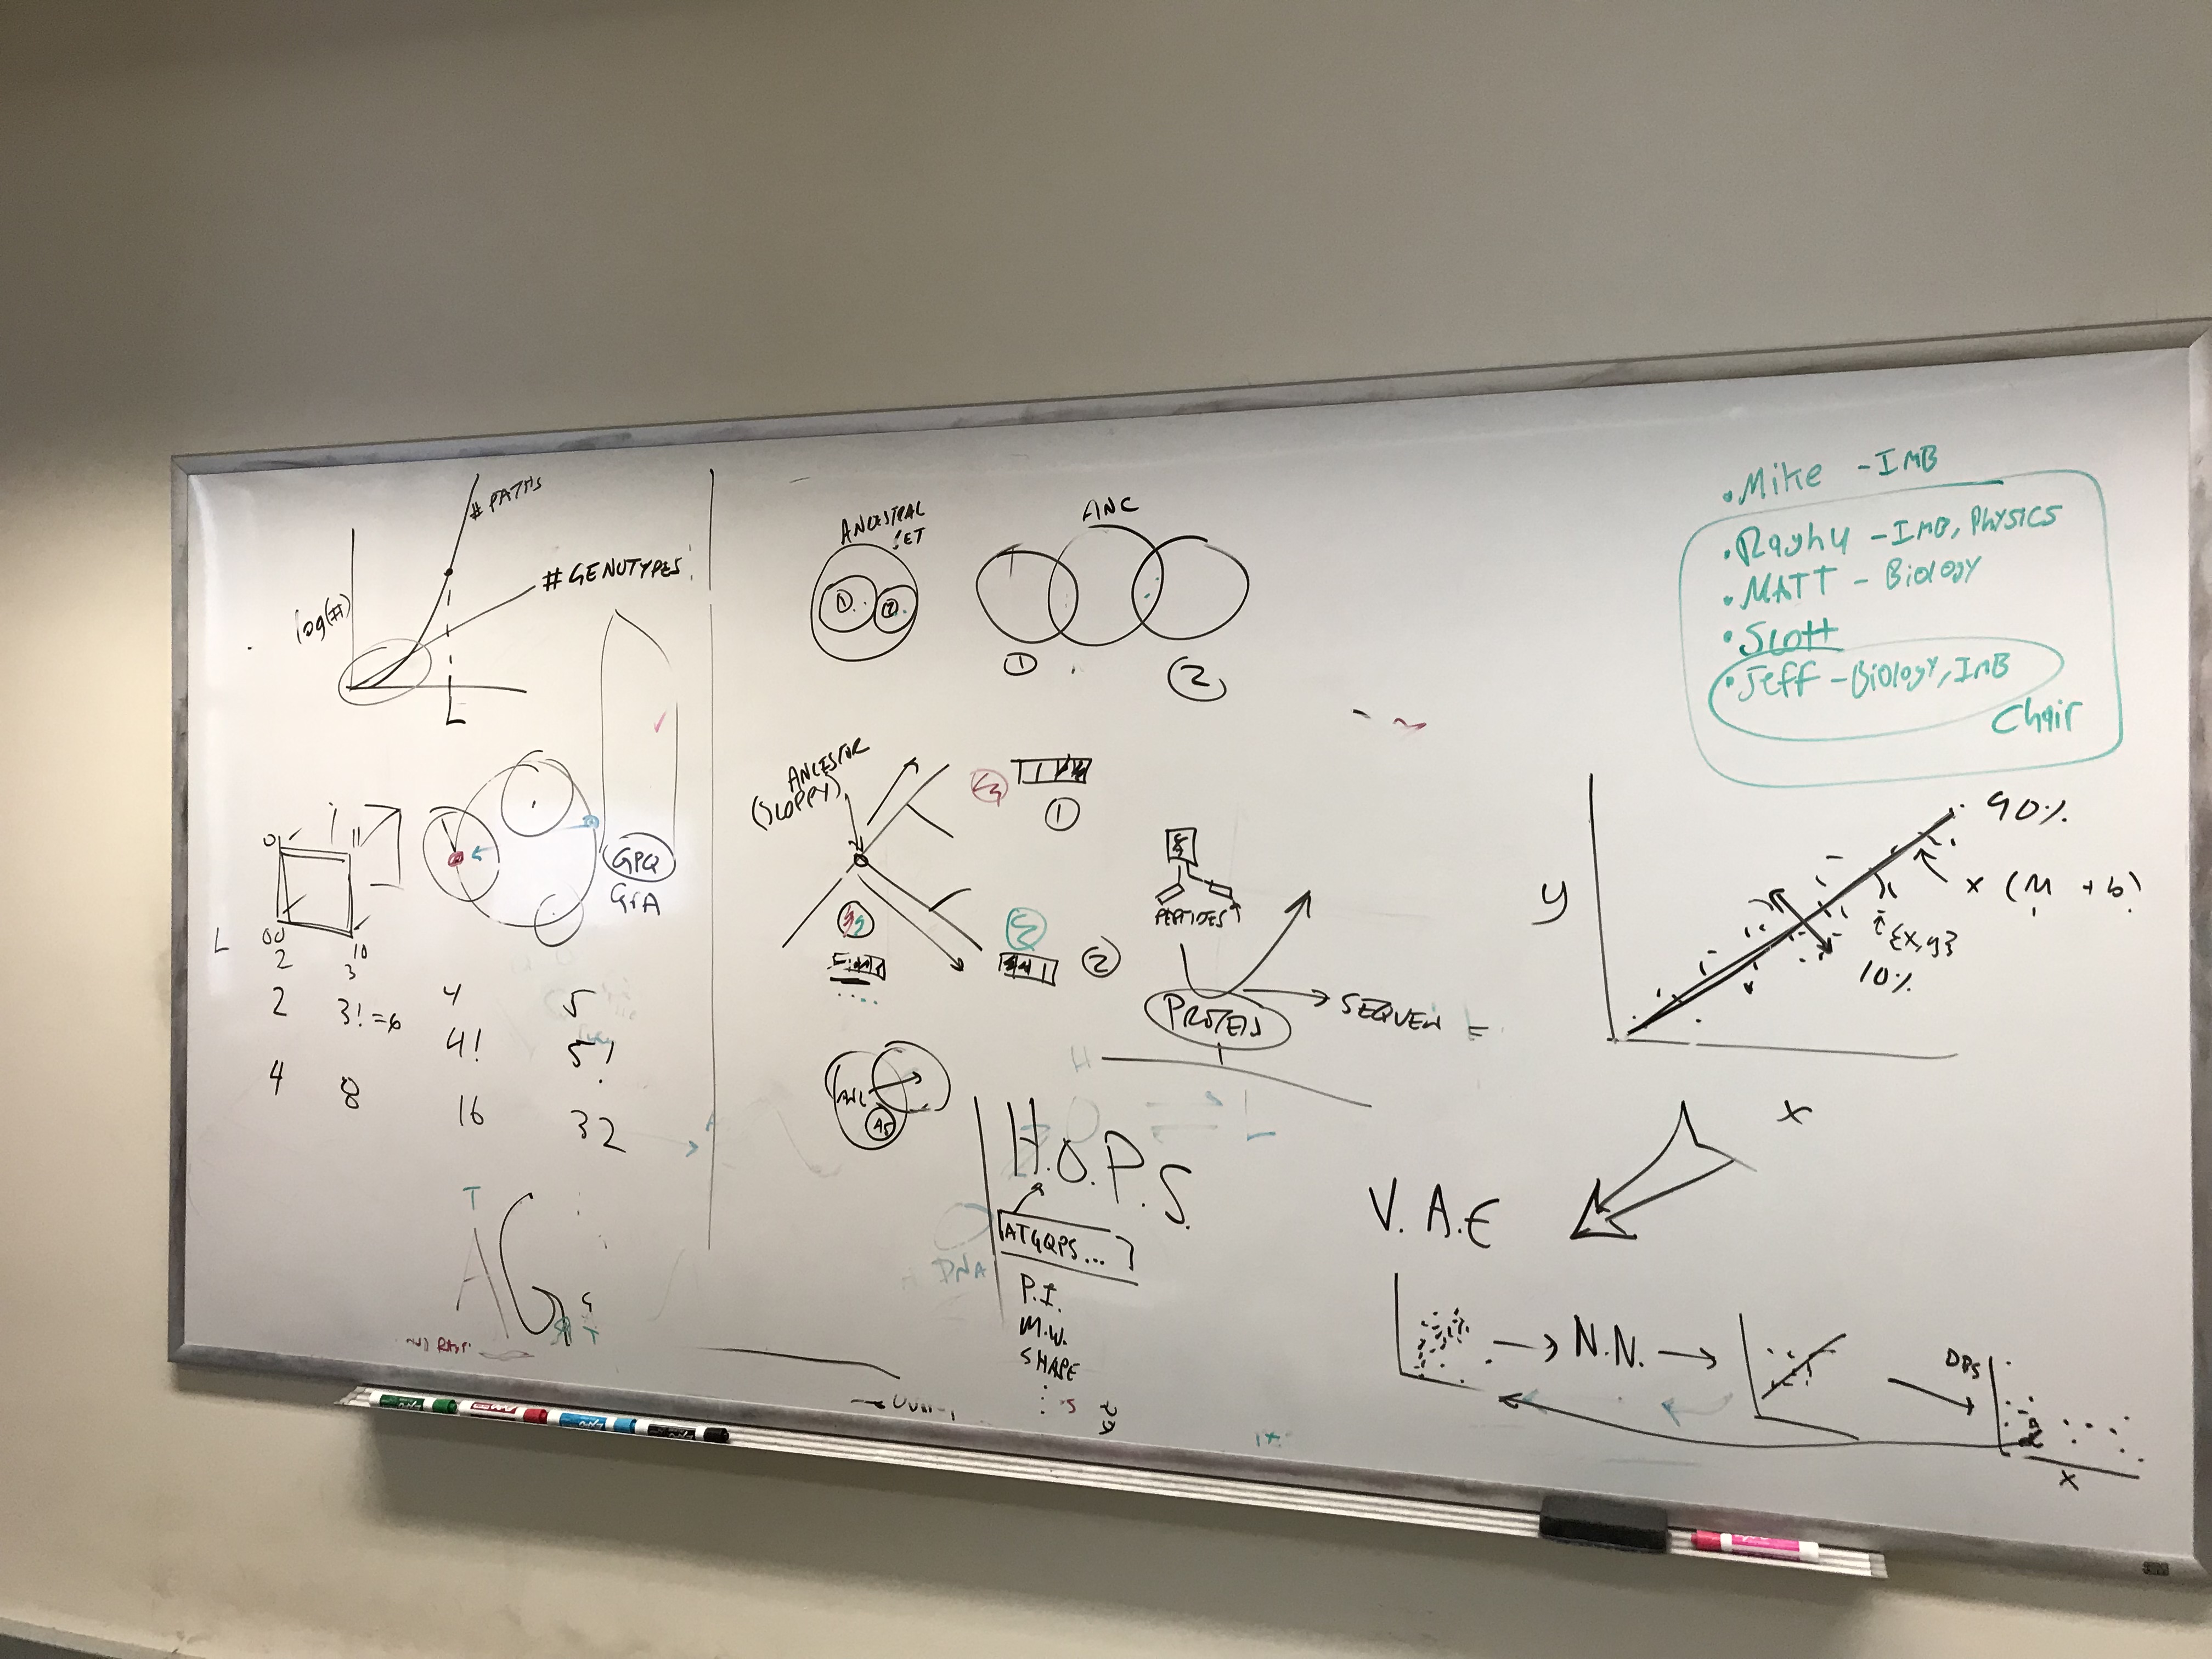 # PATHS
# GENOTYPES
log(#)
L
01
11
00
10
L
2
3
4
5
2
3! = 6
4!
5!
4
8
16
32
GPQ
T
A
G
T
ANCESTRAL
SET
1
2
ANC
1
2
ANCESTOR
(SLOPPY)
1
2
PEPTIDES
PROTEIN
SEQUEN
ANC
H.O.P.S.
ATGQPS...
P.I.
M.W.
SHAPE
DNA
• Mike - IMB
• Raghu - IMB, Physics
• MATT - Biology
• Scott
• Jeff - Biology, IMB
Chair
y
90%
x (M + b)
{x,y}
10%
x
V.A.E
N.N.
x